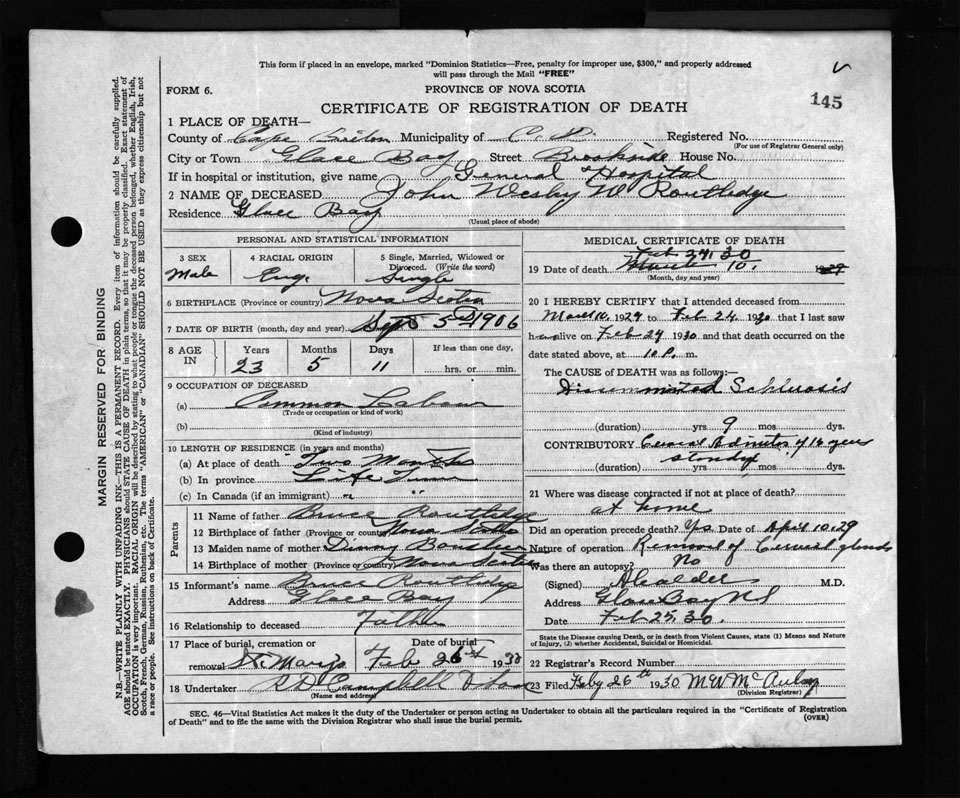 This form if placed in an envelope, marked "Dominion Statistics—Free, penalty for improper use, $300," and properly addressed
will pass through the Mail "FREE"
FORM 6.
PROVINCE OF NOVA SCOTIA
145
CERTIFICATE OF REGISTRATION OF DEATH
1 PLACE OF DEATH—
County of Cape Breton Municipality of C. B. Registered No.
(For use of Registrar General only)
City or Town Glace Bay Street Brookside House No.
If in hospital or institution, give name General Hospital
2 NAME OF DECEASED John Wesley W Routledge
Residence Glace Bay
(Usual place of abode)
PERSONAL AND STATISTICAL INFORMATION
3 SEX Male
4 RACIAL ORIGIN Eng.
5 Single, Married, Widowed or Divorced. (Write the word) Single
6 BIRTHPLACE (Province or country) Nova Scotia
7 DATE OF BIRTH (month, day and year) Sept 5th 1906
8 AGE IN
Years Months Days If less than one day,
23 5 11 hrs. or min.
9 OCCUPATION OF DECEASED
(a) Common Labour
(Trade or occupation or kind of work)
(b)
(Kind of industry)
10 LENGTH OF RESIDENCE (in years and months)
(a) At place of death Two Months
(b) In province Life Time
(c) In Canada (if an immigrant) " "
Parents
11 Name of father Bruce Routledge
12 Birthplace of father (Province or country) Nova Scotia
13 Maiden name of mother
14 Birthplace of mother (Province or country) Nova Scotia
15 Informant's name Bruce Routledge
Address Glace Bay
16 Relationship to deceased Father
17 Place of burial, cremation or removal St. Mary's
Date of burial Feb 26th 1930
18 Undertaker Campbell
(Name and address)
MEDICAL CERTIFICATE OF DEATH
Feb 24. 30
19 Date of death March 10. 1929
(Month, day and year)
20 I HEREBY CERTIFY that I attended deceased from
March 10, 1929 to Feb 24 1930 that I last saw
him alive on Feb 24 1930 and that death occurred on the
date stated above, at 10 P. m.
The CAUSE of DEATH was as follows:—
Disseminated Schlerosis
(duration) yrs. 9 mos. dys.
CONTRIBUTORY Cervical Adenitis of 16 years
standing
(duration) yrs. mos. dys.
21 Where was disease contracted if not at place of death?
at home
Did an operation precede death? Yes Date of April 10. 29
Nature of operation Removal of Cervical glands
Was there an autopsy? No
(Signed) M.D.
Address Glace Bay NS
Date Feb 25. 30.
State the Disease causing Death, or in death from Violent Causes, state (1) Means and
Nature of Injury, (2) whether Accidental, Suicidal or Homicidal.
22 Registrar's Record Number
23 Filed Feby 26th 1930 M W McAulay
(Division Registrar)
SEC. 46—Vital Statistics Act makes it the duty of the Undertaker or person acting as Undertaker to obtain all the particulars required in the "Certificate of Registration
of Death" and to file the same with the Division Registrar who shall issue the burial permit.
(OVER)
MARGIN RESERVED FOR BINDING
N.B.—WRITE PLAINLY WITH UNFADING INK—THIS IS A PERMANENT RECORD. Every item of information should be carefully supplied.
AGE should be stated EXACTLY. PHYSICIANS should STATE CAUSE OF DEATH in plain terms, so that it may be properly classified. Exact statement of
OCCUPATION is very important. RACIAL ORIGIN will be described by stating to what people or tongue the deceased person belonged, whether English, Irish,
Scotch, French, German, Russian, Ruthenian, etc. The terms "AMERICAN" or "CANADIAN" SHOULD NOT BE USED as they express citizenship but not
a race or people. See instructions on back of Certificate.